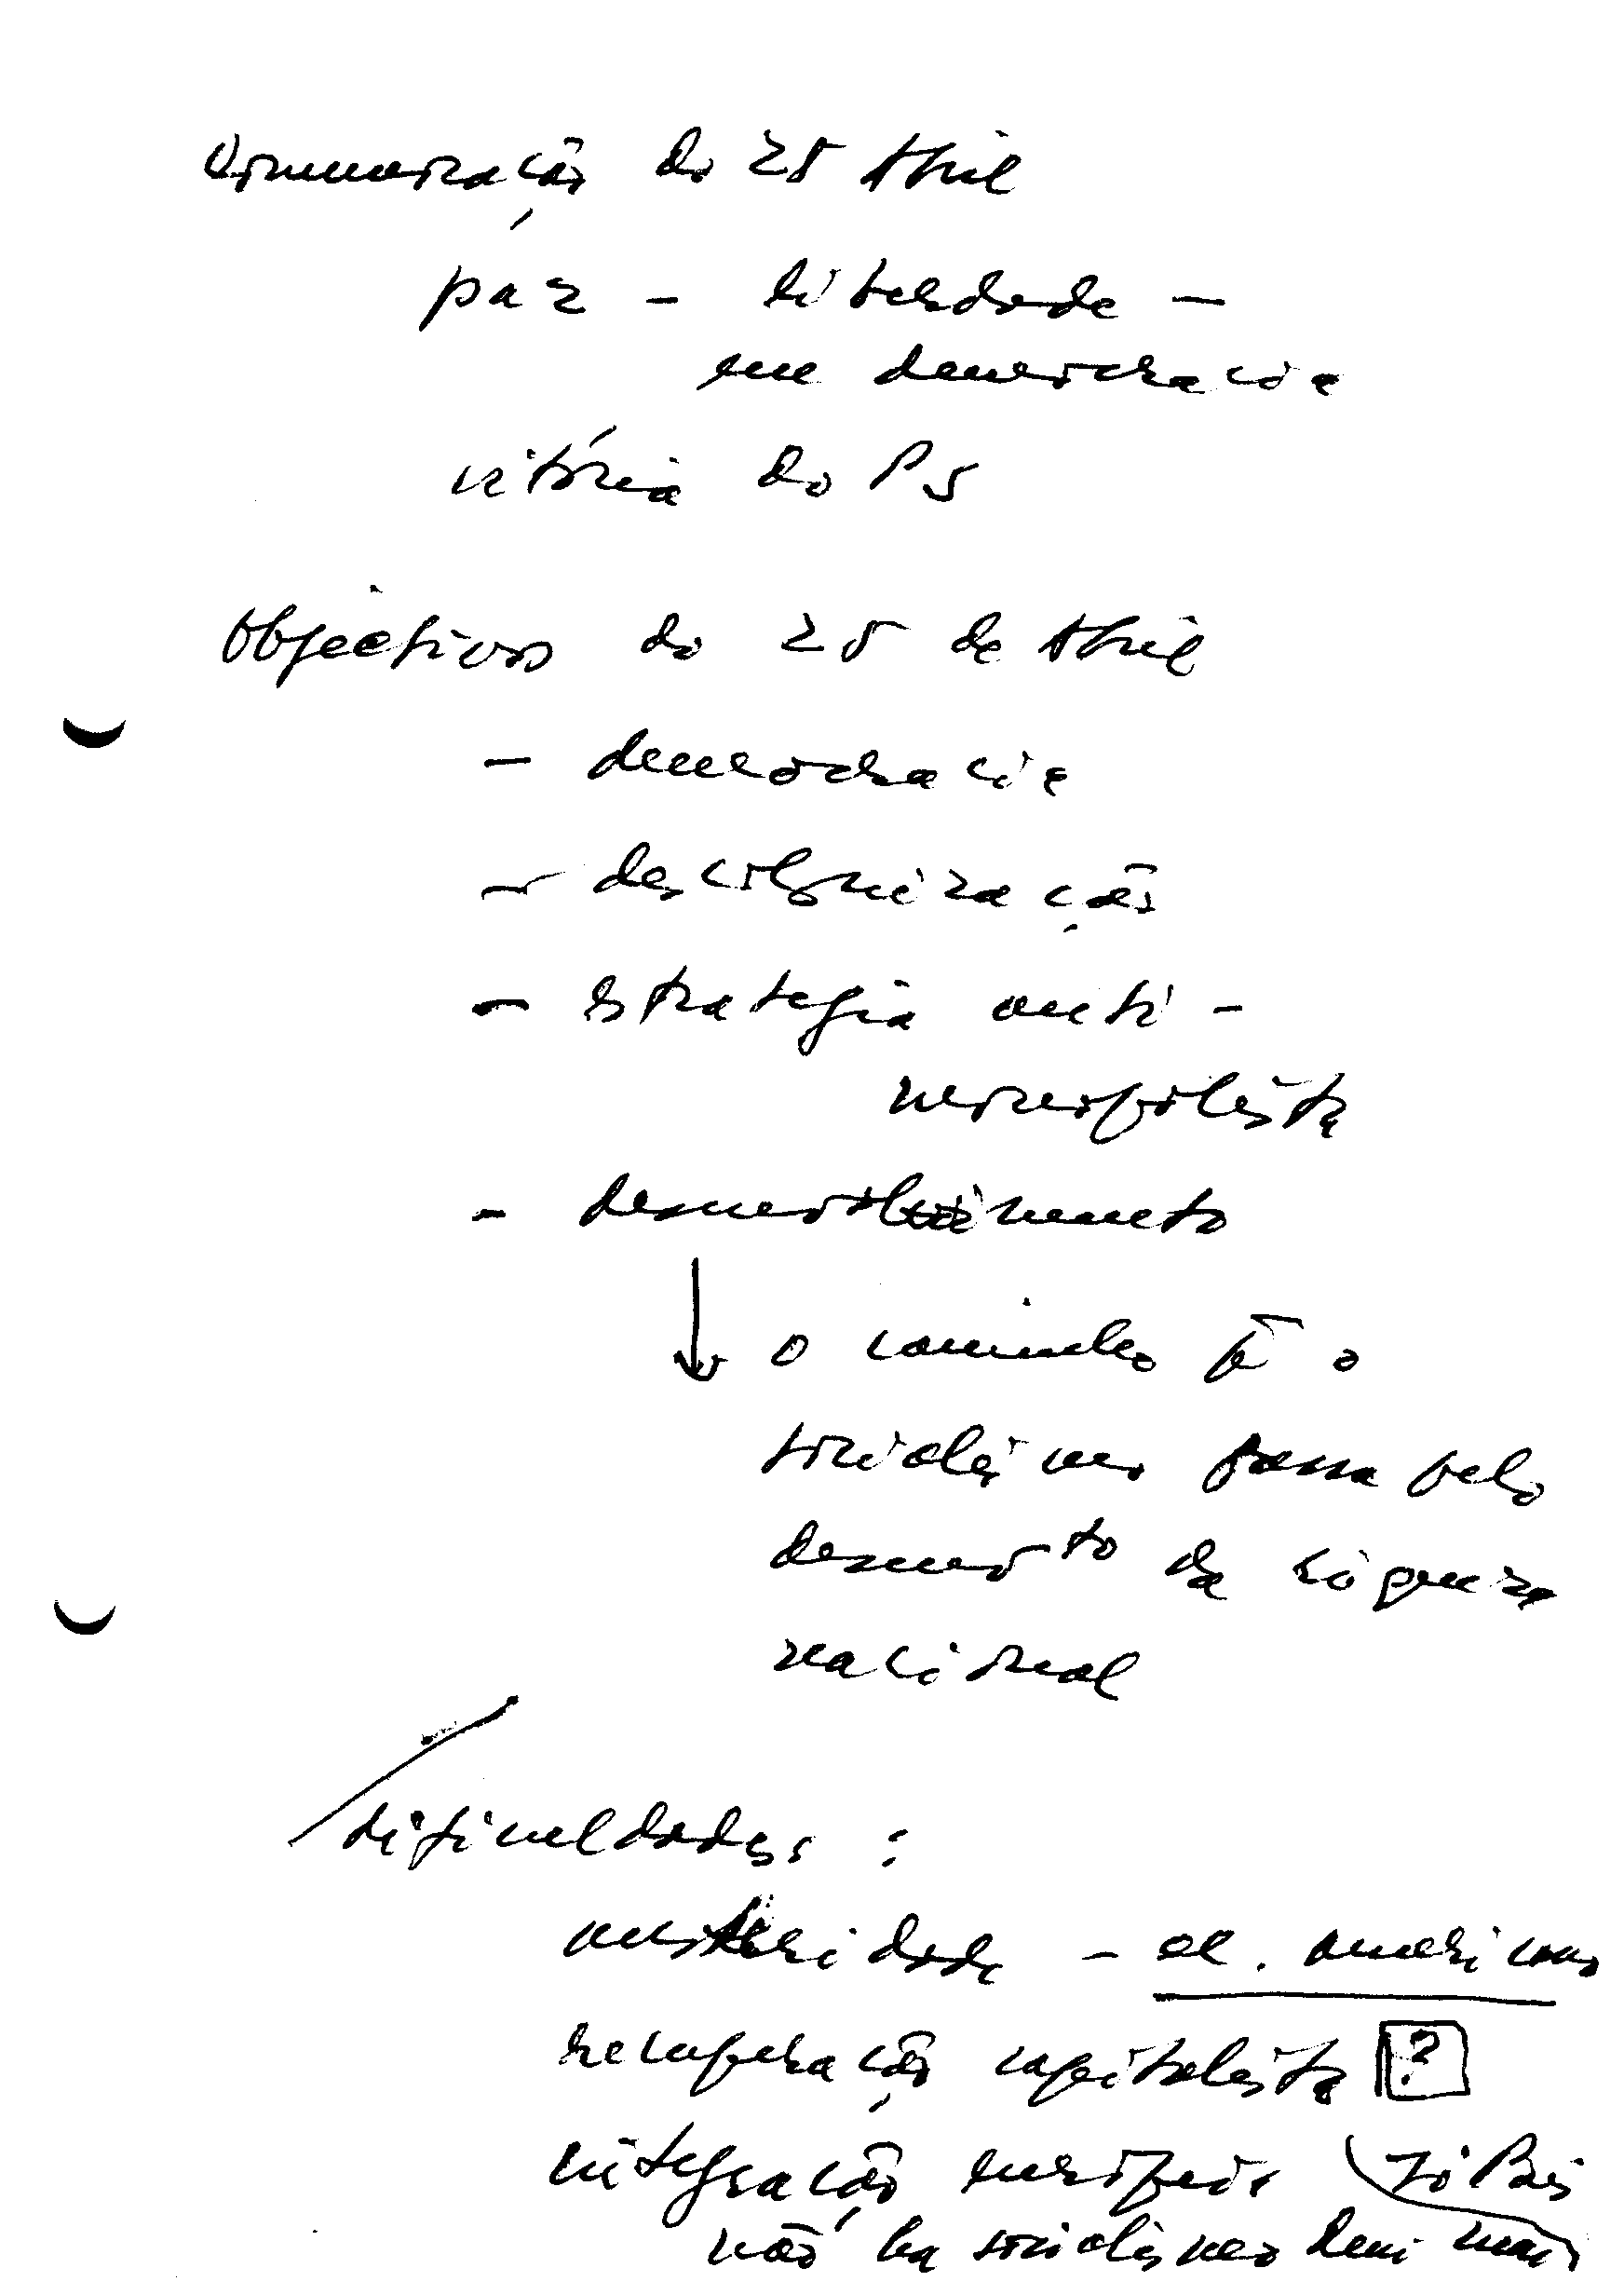 Comemoração do 25 Abril
paz - liberdade -
em democracia
vitória do PS
Objectivos do 25 de Abril
- democracia
- descolonização
- estrategia anti-
monopolista
- desenvolvimento
↓ o caminho p̄ o
socialismo passa pelo
desenvto da riqueza
nacional
dificuldades :
austeridade - al. americano
recuperação capitalista ?
integração europeia
não há socialismo